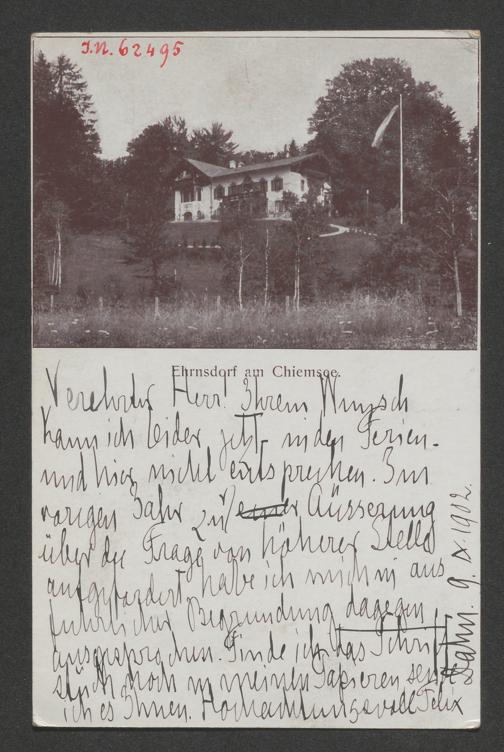 J.N. 62495
Ehrnsdorf am Chiemsee.
Verehrter Herr! Ihrem Wunsch
kann ich leider jetzt in den Ferien
und hier nicht entsprechen. Im
vorigen Jahr zu einer Äusserung
über die Frage von höherer Stelle
aufgefordert, habe ich mich in aus
führlicher Begründung dagegen
ausgesprochen. Finde ich das Schrift
stück noch in meinen Papieren send
ich es Ihnen. Hochachtungsvoll Felix
Dahn. 9. IX. 1902.